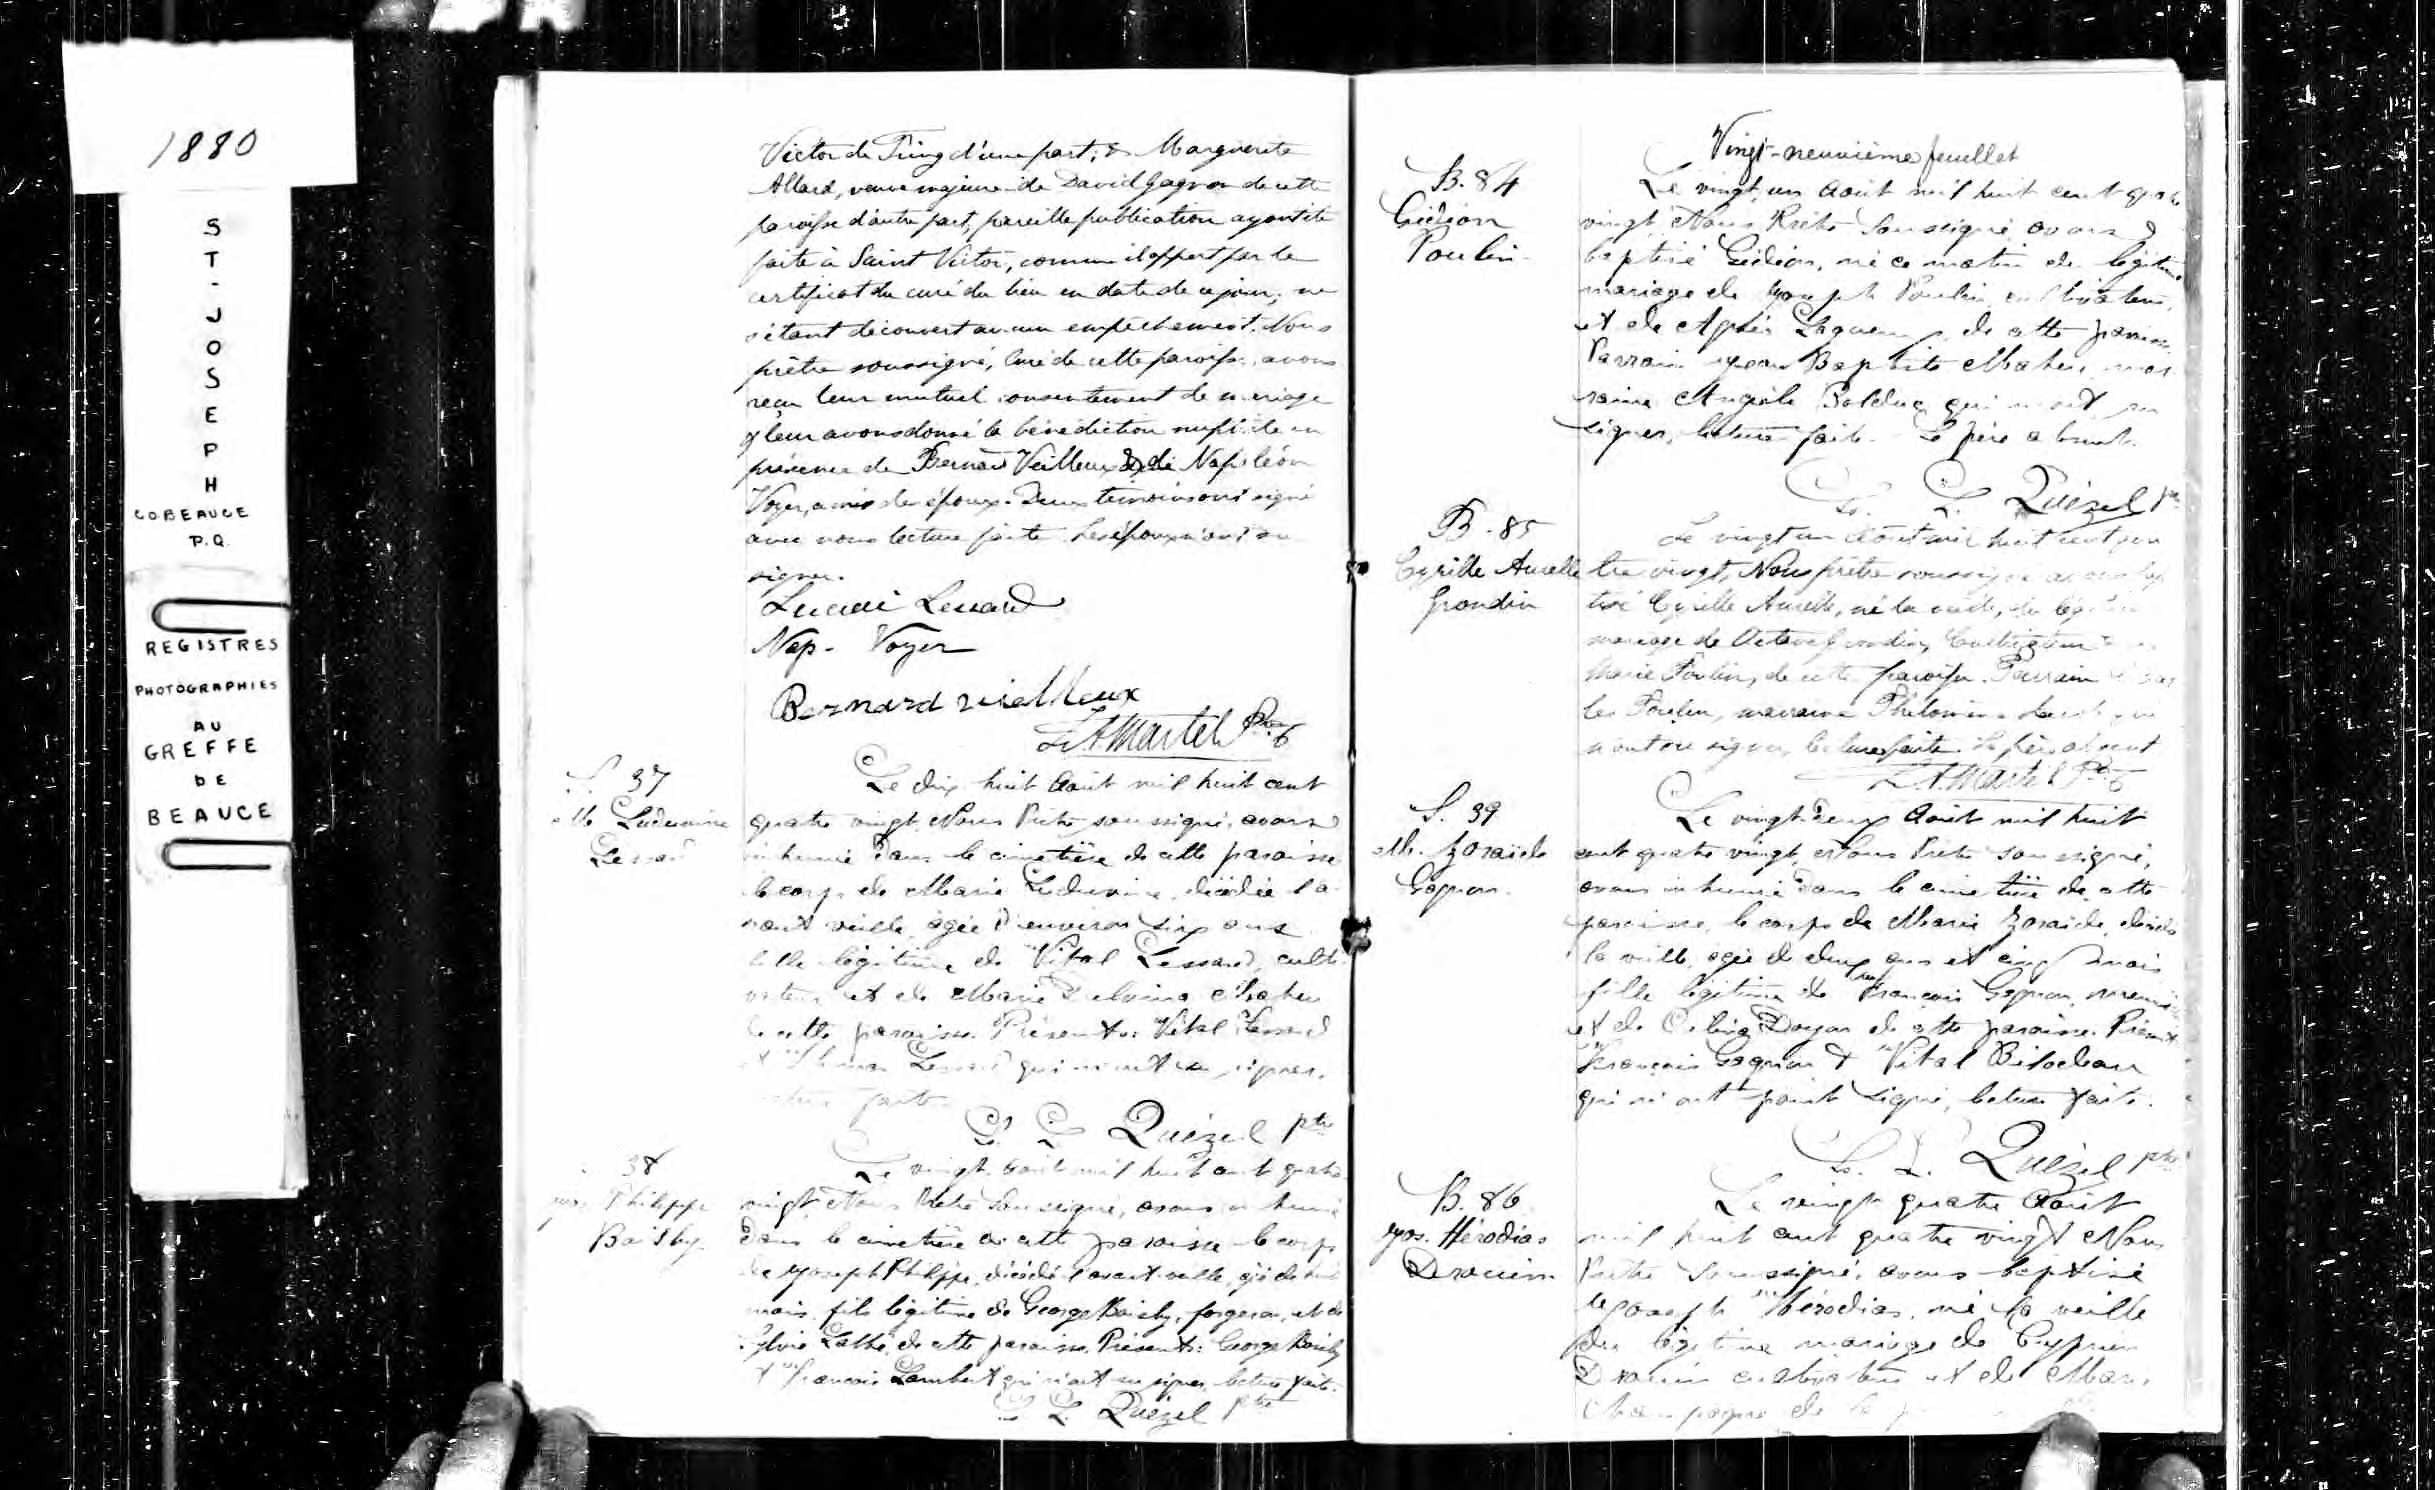 1880
ST-JOSEPH
CO BEAUCE
P.Q.
REGISTRES
PHOTOGRAPHIES
AU
GREFFE
DE
BEAUCE
Victor de Tring d'une part; & Marguerite
Allard, veuve majeure de David Gagnon de cette
paroisse d'autre part, pareille publication ayant été
faite à Saint Victor, comme il appert par le
certificat du curé du lieu en date de ce jour; ne
s'étant découvert aucun empêchement. Nous
prêtre soussigné, Curé de cette paroisse, avons
reçu leur mutuel consentement de mariage
& leur avons donné la bénédiction nuptiale en
présence de Bernard Veilleux & de Napoléon
Voyer, amis des époux. Deux témoins ont signé
avec nous lecture faite. Les époux n'ont su
signer.
Nap. Voyer
Bernard vieilleux
Martel Ptre
S. 37
Ludivine
Lessard
Le dix huit Août mil huit cent
quatre vingt, Nous Prêtre soussigné, avons
inhumé dans le cimetière de cette paroisse
le corps de Marie Ludivine, décédée l'a-
vant veille, agée d'environ six ans
fille légitime de Vital Lessard, culti-
vateur et de Marie Delvina Maheu
de cette paroisse. Présents: Vital Lessard
et Lessard qui n'ont su signer,
lecture faite.
L. L. Quézel ptre
38
Jos. Philippe
Le vingt Août mil huit cent quatre
vingt Nous Prêtre soussigné, avons inhumé
dans le cimetière de cette paroisse le corps
de Joseph Philippe, décédé l'avant veille, agé de
mois, fils légitime de George forgeron, et de
de cette paroisse. Présents: George
& François Lambert qui n'ont su signer, lecture faite.
L. L. Quézel Ptre
Vingt-neuvième feuillet
B. 84
Gédéon
Poulin
Le vingt un Août mil huit cent quatre
vingt, Nous Prêtre soussigné avons
baptisé Gédéon, né ce matin du légitime
mariage de Joseph Poulin, cultivateur,
et de Lagueux, de cette paroisse.
Parrain Jean Baptiste Maheu, mar-
raine Angèle Bolduc qui n'ont su
signer, lecture faite. Le père absent.
L. L. Quézel ptre
B. 85
Cyrille Aurelle
Grondin
Le vingt un Août mil huit cent qua
tre vingt, Nous prêtre soussigné avons bap
tisé Cyrille Aurelle, né la veille, du légitime
mariage de Octave Grondin, Cultivateur
Marie Poulin, de cette paroisse. Parrain
Poulin, marraine Philomène qui
n'ont su signer, lecture faite. Le père absent
Martel Ptre
S. 39
M. Zoraïde
Gagnon.
Le vingt-deux Août mil huit
cent quatre vingt, Nous Prêtre soussigné,
avons inhumé dans le cimetière de cette
paroisse, le corps de Marie Zoraïde, décédée
la veille, agée de deux ans et cinq mois
fille légitime de François Gagnon, menuisier
et de Célina Doyon de cette paroisse. Présents
François Gagnon & Vital Bilodeau
qui n'ont point signé, lecture faite.
L. L. Quézel ptre
B. 86
Jos. Hérodias
Drouin
Le vingt quatre Août
mil huit cent quatre vingt Nous
Prêtre soussigné, avons baptisé
Joseph Hérodias, né la veille
du légitime mariage de Cyprien
Drouin cultivateur et de Marie
Champagne de